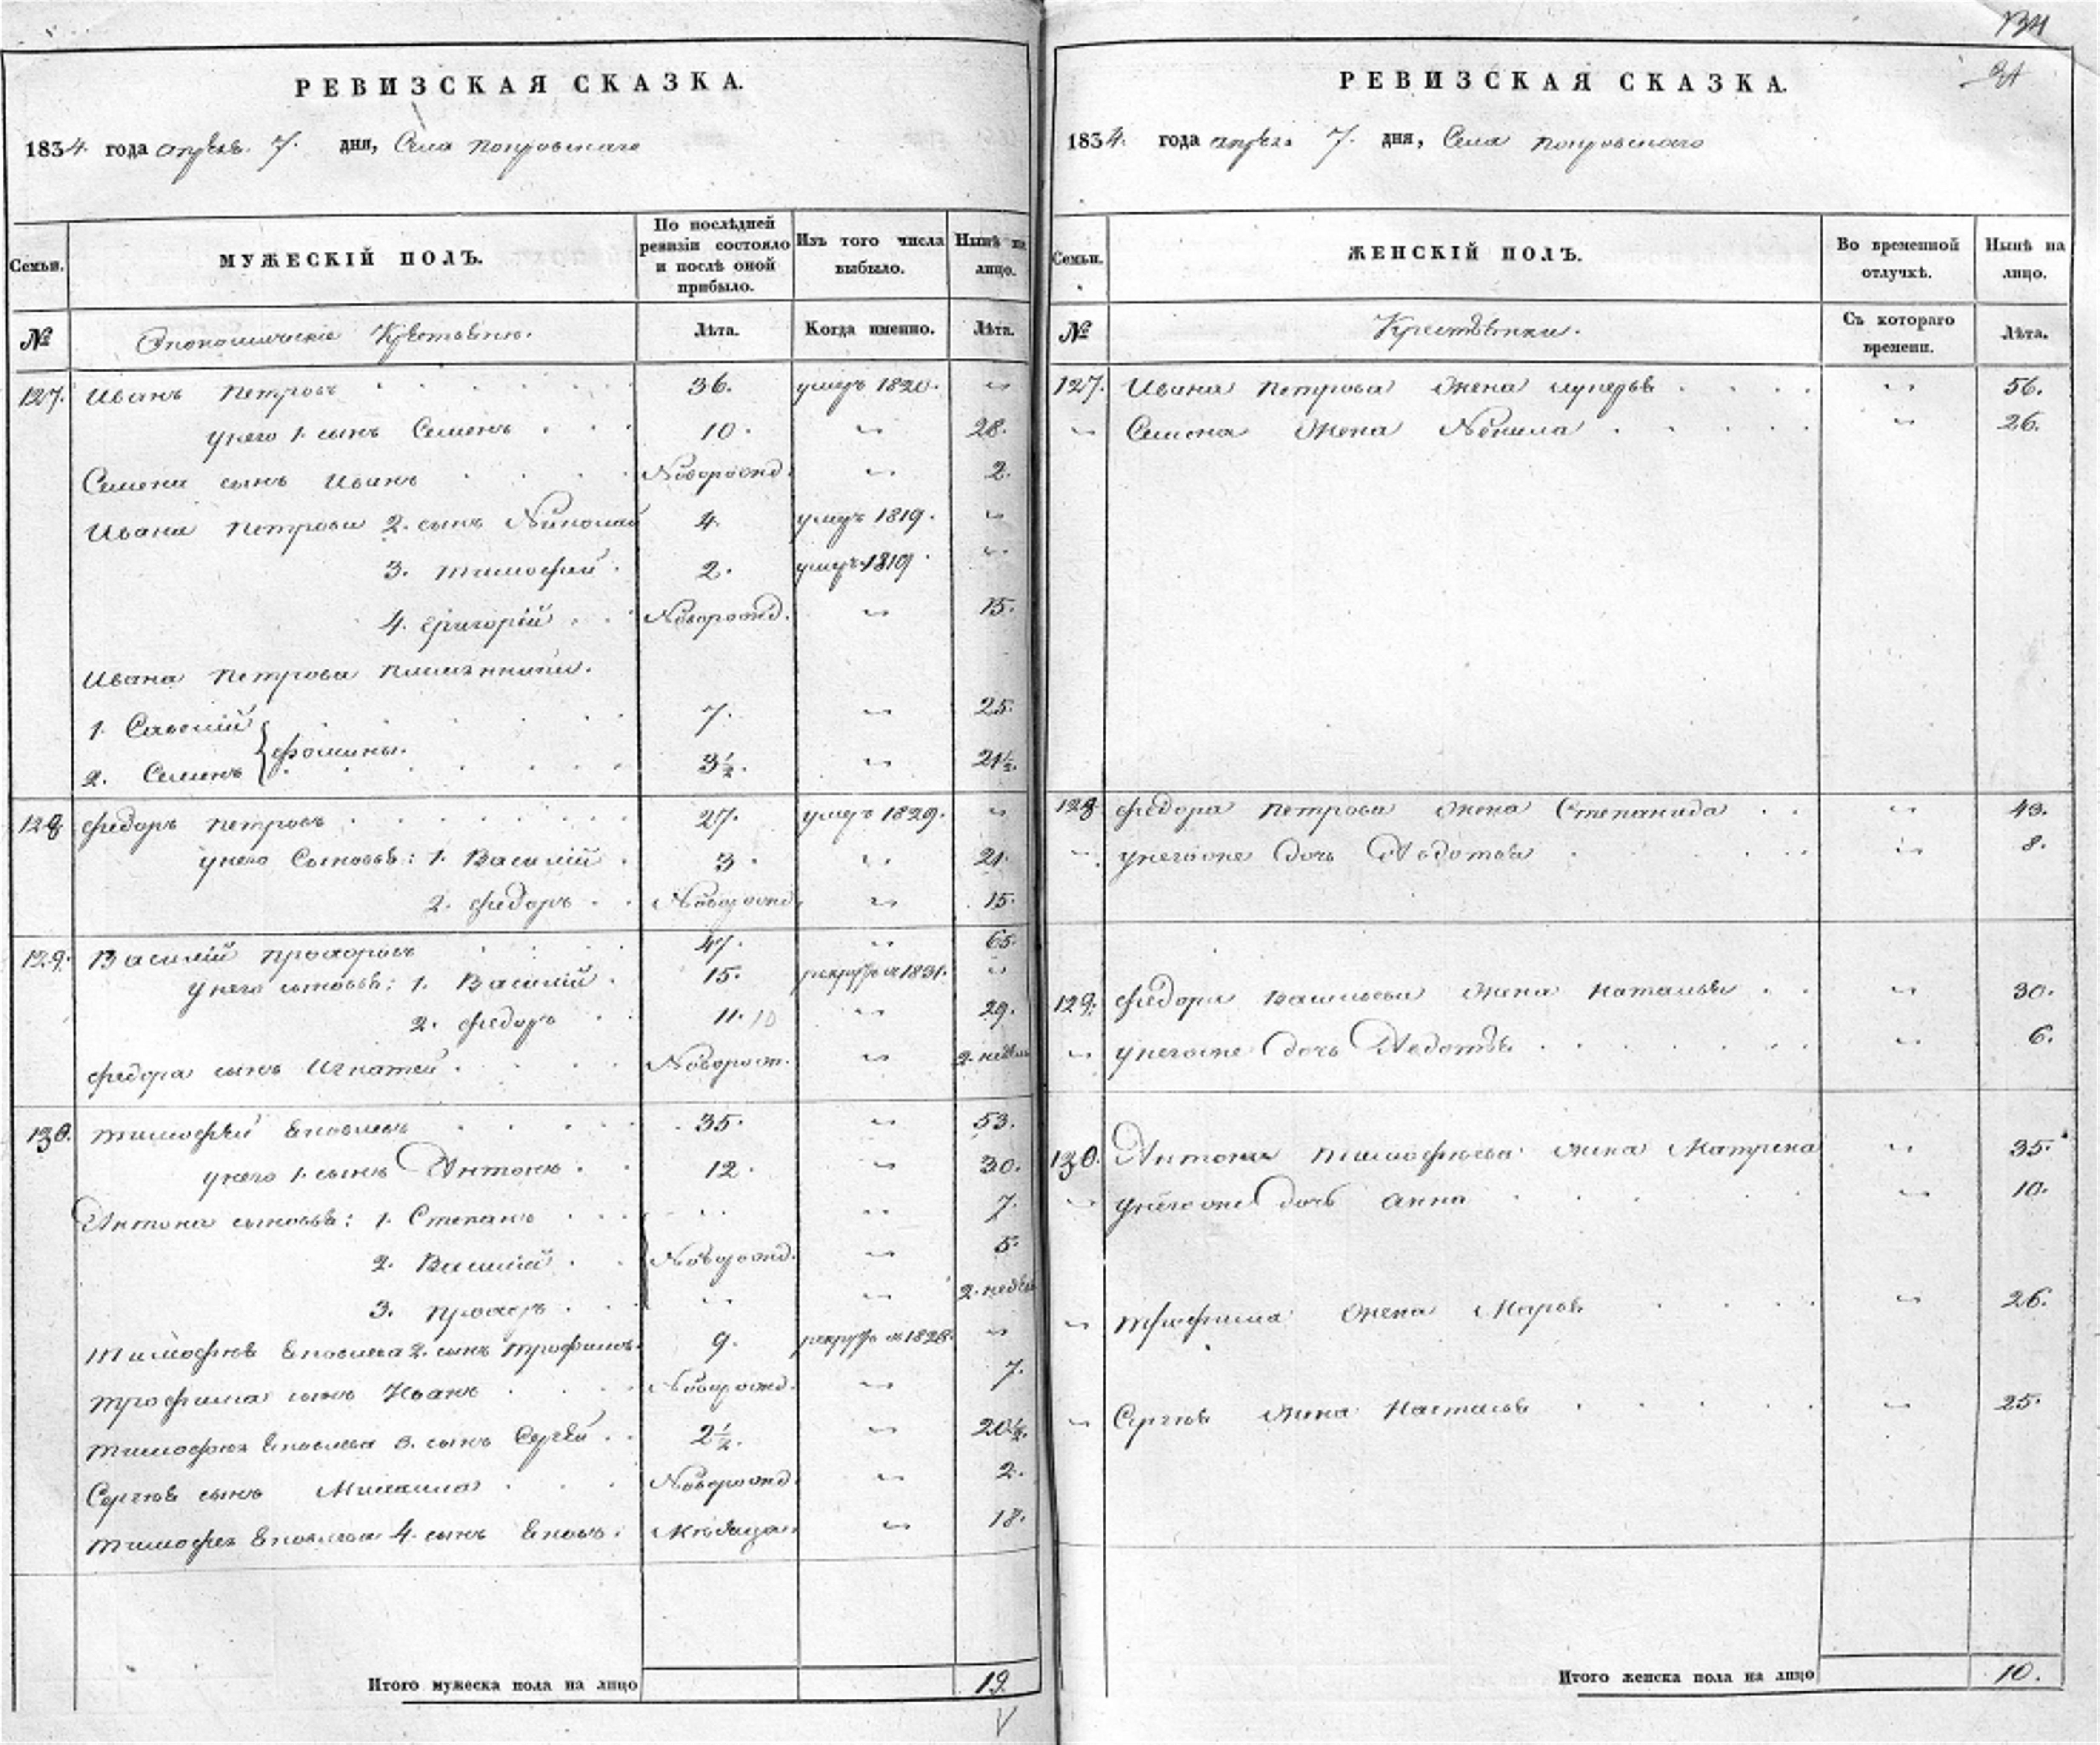 РЕВИЗСКАЯ СКАЗКА.
1834. года апрѣль 7. дня, Села Покровскаго
Семьи. МУЖЕСКІЙ ПОЛЪ. По послѣдней ревизіи состояло и послѣ оной прибыло. Изъ того числа выбыло. Нынѣ на лицо.
№ Экономическіе Крестьяне. Лѣта. Когда именно. Лѣта.
127. Иванъ Петровъ 36. умеръ 1820. „
у него 1. сынъ Семенъ 10. „ 28.
Семена сынъ Иванъ Новорожд. „ 2.
Ивана Петрова 2. сынъ Николай 4. умеръ 1819. „
3. Тимофей 2. умеръ 1819. „
4. Григорій Новорожд. „ 15.
Ивана Петрова племянники.
1. Савелій 7. „ 25.
Фомины.
2. Семенъ 3½. „ 21½.
128 Федоръ Петровъ 27. умеръ 1829. „
у него сыновья: 1. Василій 3. „ 21.
2. Федоръ Новорожд. „ 15.
129. Василій Прохоровъ 47. „ 65.
у него сыновья: 1. Василій 15. 1831. „
2. Федоръ 11. „ 29.
Федора сынъ Игнатей Новорож. „ 2. недели
130. Тимофѣй Яковлевъ 35. „ 53.
у него 1. сынъ Антонъ 12. „ 30.
Антона сыновья: 1. Степанъ „ „ 7.
2. Василій Новорожд. „ 5.
3. Прохоръ „ „ 2. недели
Тимофея Яковлева 2. сынъ Трофимъ 9. 1828. „
Трофима сынъ Иванъ Новорожд. „ 7.
Тимофея Яковлева 3. сынъ Сергѣй 2½. „ 20½.
Сергея сынъ Михаила Новорожд. „ 2.
Тимофея Яковлева 4. сынъ Яковъ. „ 18.
Итого мужеска пола на лицо 19.
134
34
РЕВИЗСКАЯ СКАЗКА.
1834. года апрѣля 7. дня, Села Покровскаго
Семьи. ЖЕНСКІЙ ПОЛЪ. Во временной отлучкѣ. Нынѣ на лицо.
№ Крестьянки. Съ котораго времени. Лѣта.
127. Ивана Петрова жена „ 56.
„ Семена жена Ненила „ 26.
128 Федора Петрова жена Степанида „ 43.
„ у него же дочь Авдотья „ 8.
129. Федора Васильева жена Наталья „ 30.
„ у него же дочь Авдотья „ 6.
130. Антона Тимофеева жена Матрена „ 35.
„ у него же дочь Анна „ 10.
„ Трофима жена Марья „ 26.
„ Сергея жена Настасья „ 25.
Итого женска пола на лицо 10.